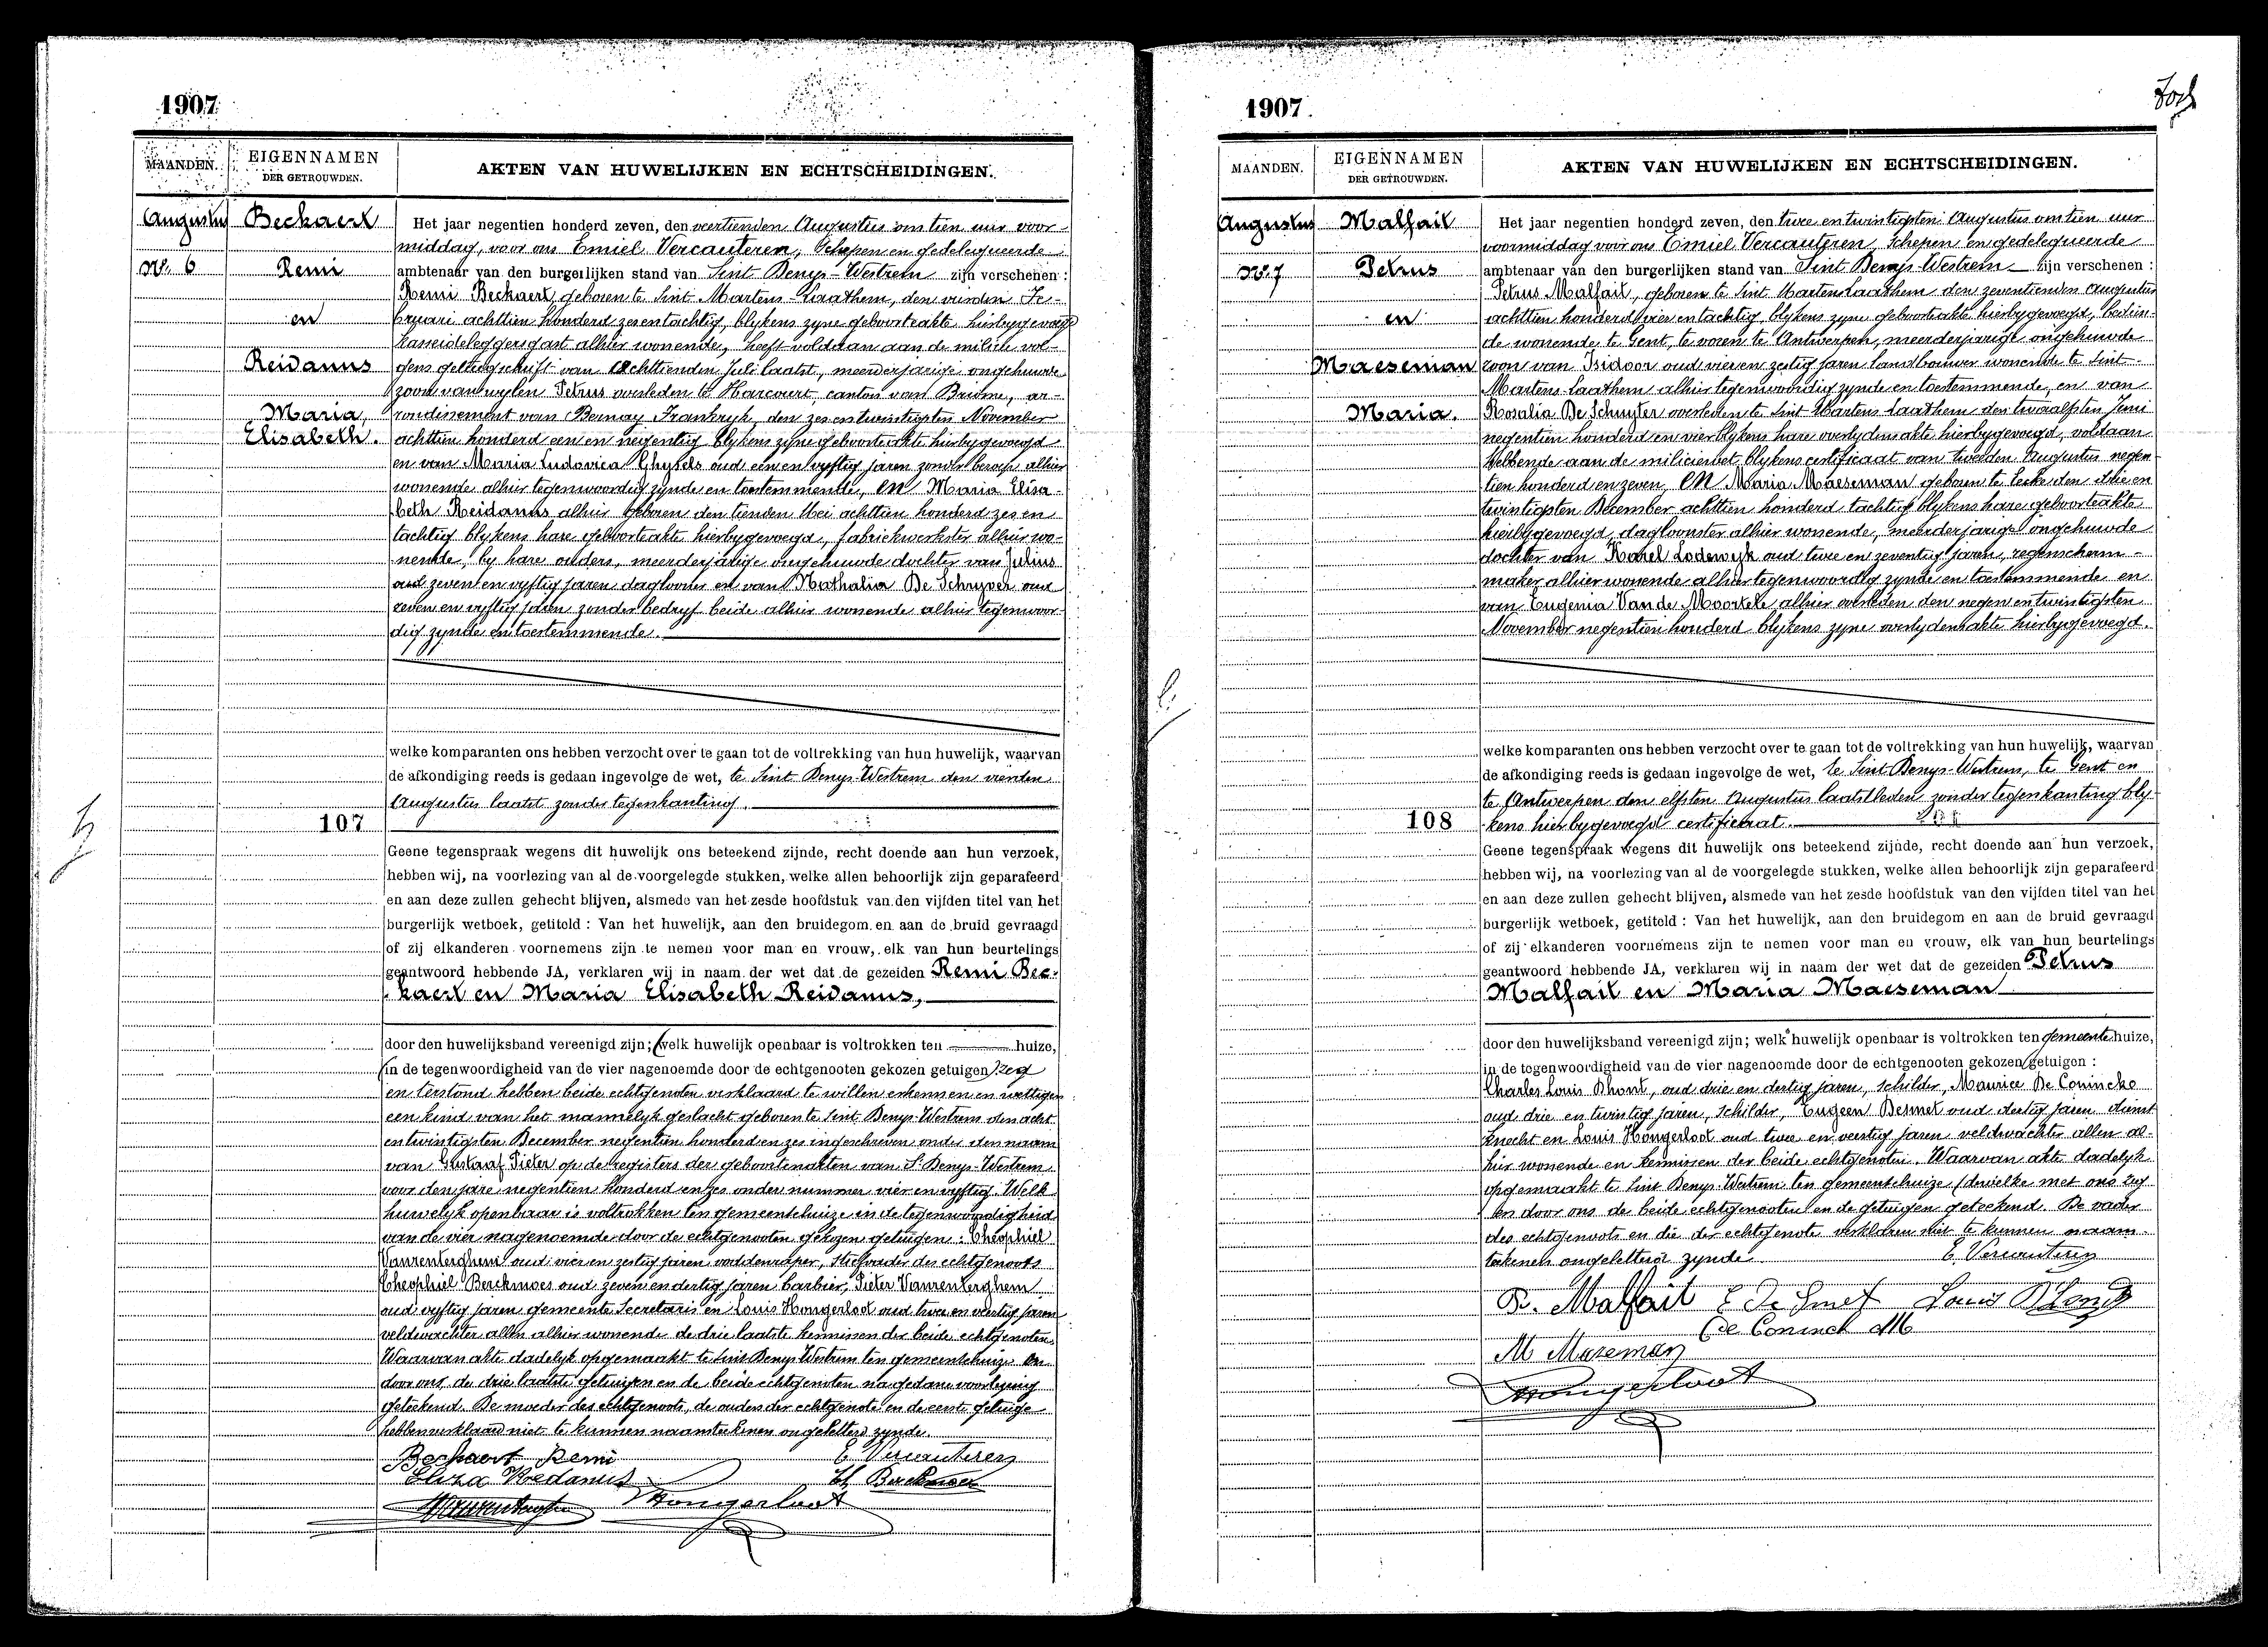 1907
MAANDEN.
EIGENNAMEN
DER GETROUWDEN.
AKTEN VAN HUWELIJKEN EN ECHTSCHEIDINGEN.
Augustus
Nr. 6
Beckaert
Remi
en
Reidanus
Maria,
Elisabeth.
107
Het jaar negentien honderd zeven, den veertienden Augustus om tien uur voor-
middag, voor ons Emiel Vercauteren, Schepen en gedelegueerde
ambtenaar van den burgerlijken stand van Sint Denys-Westrem zijn verschenen :
Remi Beckaert, geboren te Sint Martens-Laathem, den vierden Fe-
bruari achttien honderd zesentachtig, blykens zyne geboorteakte hierbygevoegd
kasseideleggersgast alhier wonende, heeft voldaan aan de militie vol-
gens geltuigschrift van achttienden Juli laatst, meerderjarige ongehuwde
zoon van wylen Petrus overleden te Harcourt, canton van Brionne, ar-
rondissement van Bernay Frankryk, den zes en twintigsten November
achttien honderd een en negentig blykens zyne geboorteakte hierbygevoegd
en van Maria Ludovica Ghysels oud een en vyftig jaren zonder beroep alhier
wonende alhier tegenwoordig zynde en toestemmende, en Maria Elisa-
beth Reidanus alhier geboren den tienden Mei achttien honderd zes en
tachtig blykens hare geboorteakte hierbygevoegd, fabriekwerkster alhier wo-
nende, by hare ouders, meerderjarige ongehuwde dochter van Julius
oud zeven en vyftig jaren daglooner en van Nathalia De Schryver oud
zeven en vyftig jaren zonder bedryf beide alhier wonende alhier tegenwoor-
dig zynde en toestemmende.
welke komparanten ons hebben verzocht over te gaan tot de voltrekking van hun huwelijk, waarvan
de afkondiging reeds is gedaan ingevolge de wet, te Sint Denys-Westrem den vierden
Augustus laatst zonder tegenkanting.
Geene tegenspraak wegens dit huwelijk ons beteekend zijnde, recht doende aan hun verzoek,
hebben wij, na voorlezing van al de voorgelegde stukken, welke allen behoorlijk zijn geparafeerd
en aan deze zullen gehecht blijven, alsmede van het zesde hoofdstuk van den vijfden titel van het
burgerlijk wetboek, getiteld : Van het huwelijk, aan den bruidegom en aan de bruid gevraagd
of zij elkanderen voornemens zijn te nemen voor man en vrouw, elk van hun beurtelings
geantwoord hebbende JA, verklaren wij in naam der wet dat de gezeiden Remi Bec-
kaert en Maria Elisabeth Reidanus,
door den huwelijksband vereenigd zijn; (welk huwelijk openbaar is voltrokken ten huize,
(in de tegenwoordigheid van de vier nagenoemde door de echtgenooten gekozen getuigen)
en terstond hebben beide echtgenoten verklaard te willen erkennen en wettigen
een kind van het mannelyk geslacht geboren te Sint Denys-Westrem den acht
en twintigsten December negentien honderd en zes ingeschreven onder den naam
van Gustaaf Pieter op de registers der geboortenakten van St Denys-Westrem
voor den jare negentien honderd en zes onder nummer vier en vyftig. Welk
huwelyk openbaar is voltrokken ten gemeentehuize in de tegenwoordigheid
van de vier nagenoemde door de echtgenooten gekozen getuigen : Theophiel
Vanrenterghem oud vier en zestig jaren voddenraper, stiefvader des echtgenoots
Theophiel Berckmoes oud zeven en dertig jaren barbier, Pieter Vanrenterghem
oud vyftig jaren gemeente Secretaris en Louis Hongerloot oud twee en veertig jaren
veldwachter allen alhier wonende de drie laatste kennissen der beide echtgenoten.
Waarvan akte dadelyk opgemaakt te Sint Denys Westrem ten gemeentehuize en
door ons, de drie laatste getuigen en de beide echtgenoten na gedane voorlezing
geteekend. De moeder des echtgenoots, de ouders der echtgenote en de eerste getuige
hebben verklaard niet te kunnen naamteekenen ongeletterd zynde.
Beckaert Remi
E Vercauteren
Eliza Redanus
Th Berckmoes
Vanrenterghem
Hongerloot
1907.
MAANDEN.
EIGENNAMEN
DER GETROUWDEN.
AKTEN VAN HUWELIJKEN EN ECHTSCHEIDINGEN.
Augustus
Nr. 7
Malfait
Petrus
en
Maeseman
Maria.
108
Het jaar negentien honderd zeven, den twee en twintigsten Augustus om tien uur
voormiddag voor ons Emiel Vercauteren, Schepen en gedelegueerde
ambtenaar van den burgerlijken stand van Sint Denys-Westrem zijn verschenen :
Petrus Malfait, geboren te Sint Martens Laathem den zeventienden Augustus
achttien honderd vier en tachtig, blykens zyne geboorteakte hierbygevoegd, bedien-
de wonende te Gent, te voren te Antwerpen, meerderjarige ongehuwde
zoon van Isidoor oud vier en zestig jaren landbouwer wonende te Sint-
Martens-Laathem alhier tegenwoordig zynde en toestemmende, en van
Rosalia De Schuyter overleden te Sint Martens Laathem den twaalfsten Juni
negentien honderd en vier blykens hare overlydensakte hierbygevoegd, voldaan
hebbende aan de militiewet blykens certificaat van tweeden Augustus negen-
tien honderd en zeven, en Maria Maeseman geboren te Eecke den drie en
twintigsten December achttien honderd tachtig blykens hare geboorteakte
hierbygevoegd, dagloonster alhier wonende, meerderjarige ongehuwde
dochter van Karel Lodewyk oud twee en zeventig jaren, regenscherm-
maker alhier wonende alhier tegenwoordig zynde en toestemmende en
van Eugenia Van de Moortele alhier overleden den negen en twintigsten
November negentien honderd blykens zyne overlydensakte hierbygevoegd.
welke komparanten ons hebben verzocht over te gaan tot de voltrekking van hun huwelijk, waarvan
de afkondiging reeds is gedaan ingevolge de wet, te Sint-Denys-Westrem, te Gent en
te Antwerpen den elfsten Augustus laatstleden zonder tegenkanting bly-
kens hierbygevoegd certificaat.
Geene tegenspraak wegens dit huwelijk ons beteekend zijnde, recht doende aan hun verzoek,
hebben wij, na voorlezing van al de voorgelegde stukken, welke allen behoorlijk zijn geparafeerd
en aan deze zullen gehecht blijven, alsmede van het zesde hoofdstuk van den vijfden titel van het
burgerlijk wetboek, getiteld : Van het huwelijk, aan den bruidegom en aan de bruid gevraagd
of zij elkanderen voornemens zijn te nemen voor man en vrouw, elk van hun beurtelings
geantwoord hebbende JA, verklaren wij in naam der wet dat de gezeiden Petrus
Malfait en Maria Maeseman
door den huwelijksband vereenigd zijn; welk huwelijk openbaar is voltrokken ten gemeentehuize,
in de tegenwoordigheid van de vier nagenoemde door de echtgenooten gekozen getuigen :
Charles Louis Dhont, oud drie en dertig jaren, schilder, Maurice De Coninck
oud drie en twintig jaren, schilder, Eugeen Desmet oud dertig jaren dienst-
knecht en Louis Hongerloot oud twee en veertig jaren veldwachter allen al-
hier wonende en kennissen der beide echtgenoten. Waarvan akte dadelyk
opgemaakt te Sint Denys-Westrem ten gemeentehuize (derwelke met ons
en door ons de beide echtgenooten en de getuigen geteekend. De vader
des echtgenoots en die der echtgenote verklaren niet te kunnen naam-
teekenen ongeletterd zynde.
E. Vercauteren
P. Malfait
E De Smet
Louis D'hondt
De Coninck M
M Maseman
Hongerloot